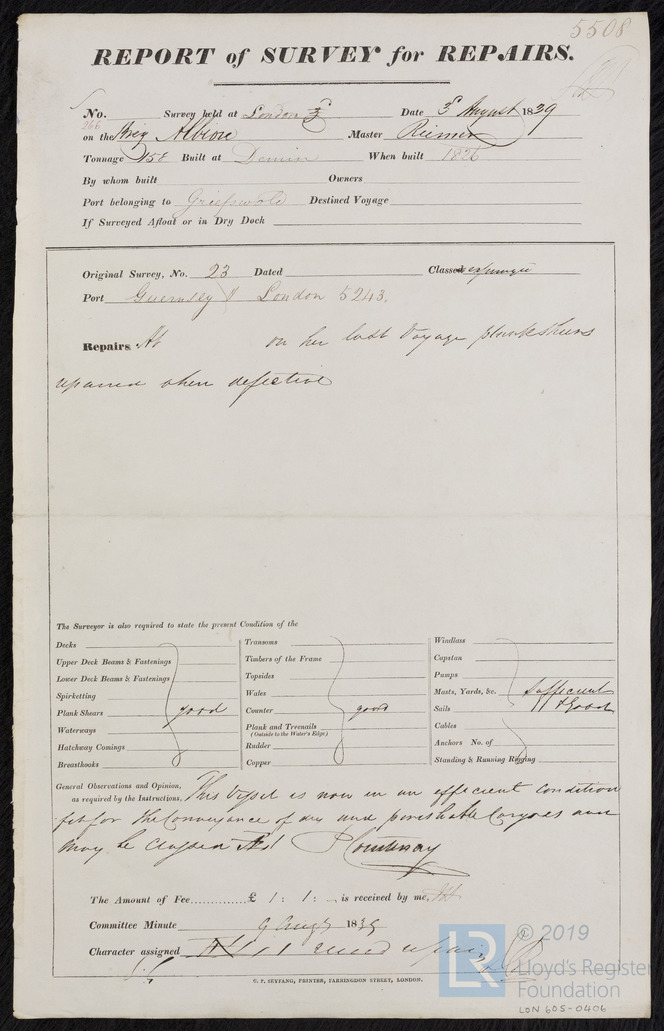 5508
REPORT of SURVEY for REPAIRS.
No. Survey held at London Date 3d August 1839
266
on the Brig Albion Master Riemer
Tonnage 158 Built at Demin When built 1826
By whom built Owners
Port belonging to Griefswold Destined Voyage
If Surveyed Afloat or in Dry Dock
Original Survey, No. 23 Dated Classed
Port Guernsey & London 5243.
Repairs At on her last Voyage planksheers
repaired when defective
The Surveyor is also required to state the present Condition of the
Decks
Upper Deck Beams & Fastenings
Lower Deck Beams & Fastenings
Spirketting
Plank Shears good
Waterways
Hatchway Comings
Breasthooks
Transoms
Timbers of the Frame
Topsides
Wales
Counter good
Plank and Treenails
(Outside to the Water's Edge)
Rudder
Copper
Windlass
Capstan
Pumps
Masts, Yards, &c. Sufficient
Sails & Good
Cables
Anchors No. of
Standing & Running Rigging
General Observations and Opinion,
as required by the Instructions, This Vessel is now in an efficient condition
fit for the Conveyance of dry and perishable Cargoes and
may be Classed P Courtenay
The Amount of Fee............£ 1 : 1 : , is received by me,
Committee Minute 9 Augt 1839
Character assigned
C. F. SEYFANG, PRINTER, FARRINGDON STREET, LONDON.
LR
© 2019
Lloyd's Register
Foundation
LON 605-0406